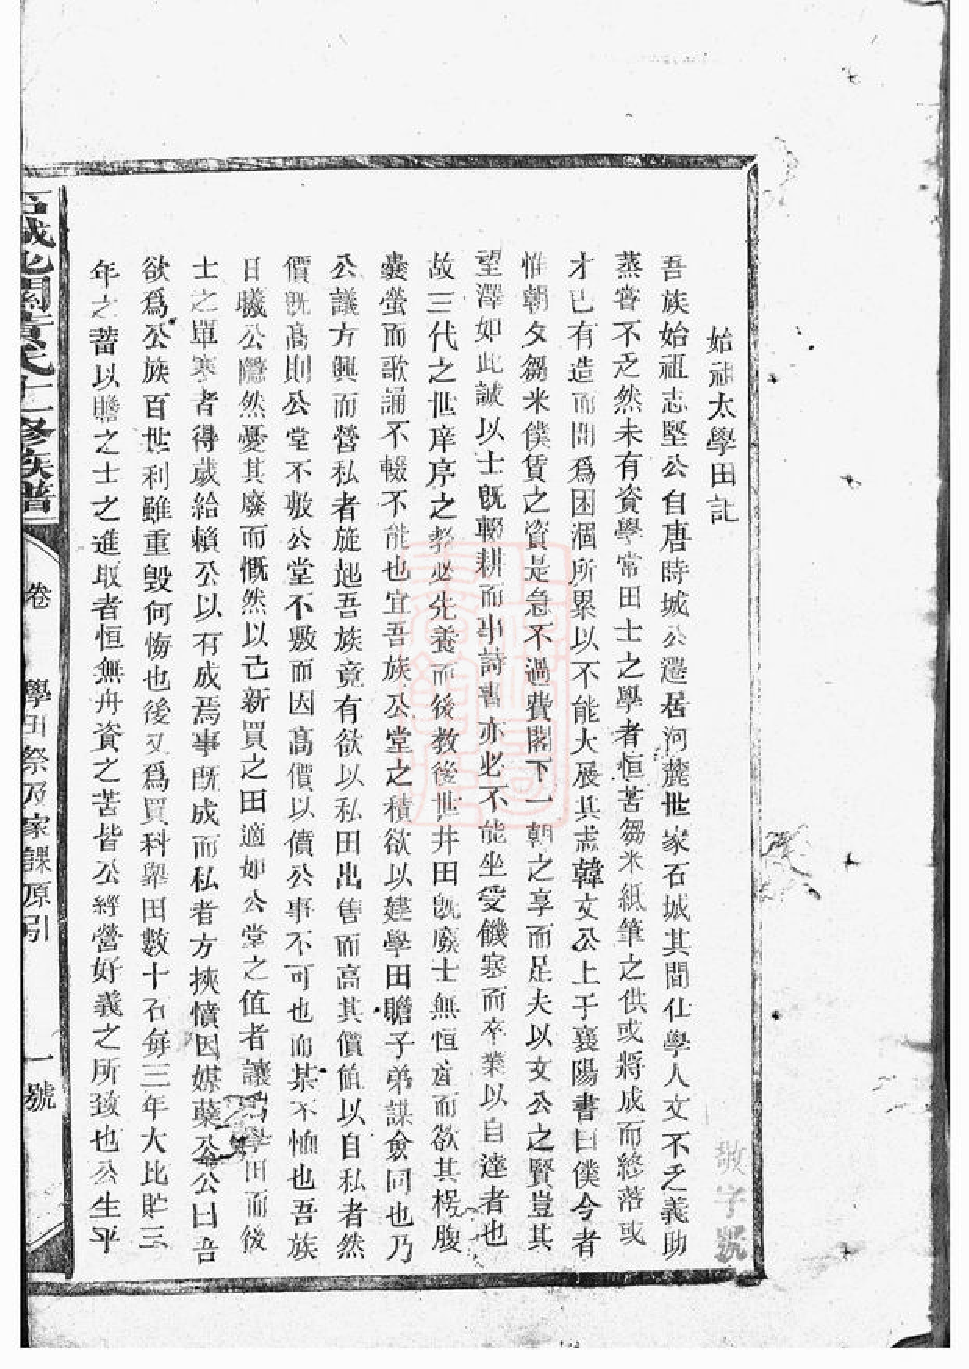 始祖太學田記
吾族始祖志堅公自唐時城公遷居河麓世家石城其間仕學人文不乏義助
蒸嘗不乏然未有資學常田士之學者恒苦芻米紙筆之供或將成而終落或
才已有造而間爲困涸所累以不能大展其志韓文公上于襄陽書曰僕今者
惟朝夕芻米僕賃之資是急不過費閣下一朝之享而足夫以文公之賢豈其
望澤如此誠以士旣輟耕而事詩書亦必不能坐受饑寒而卒業以自達者也
故三代之世庠序之教必先養而後教後世井田旣廢士無恒產而欲其枵腹
囊螢而歌誦不輟不能也宜吾族公堂之積欲以建學田贍子弟謀僉同也乃
公議方興而營私者旋起吾族竟有欲以私田出售而高其價値以自私者然
價旣高則公堂不敷公堂不敷而因高價以償公事不可也而某不恤也吾族
日曦公隱然憂其廢而慨然以己新買之田適如公堂之值者讓爲學田而後
士之單寒者得歲給賴公以有成焉事旣成而私者方挾憤因媒蘗公公曰吾
欲爲公族百世利雖重毀何悔也後又爲買科舉田數十石每三年大比貯三
年之蓄以贍之士之進取者恒無舟資之苦皆公經營好義之所致也公生平
石城北關黃氏十一修族譜
卷 學田祭及家課原引 一號
敬字號